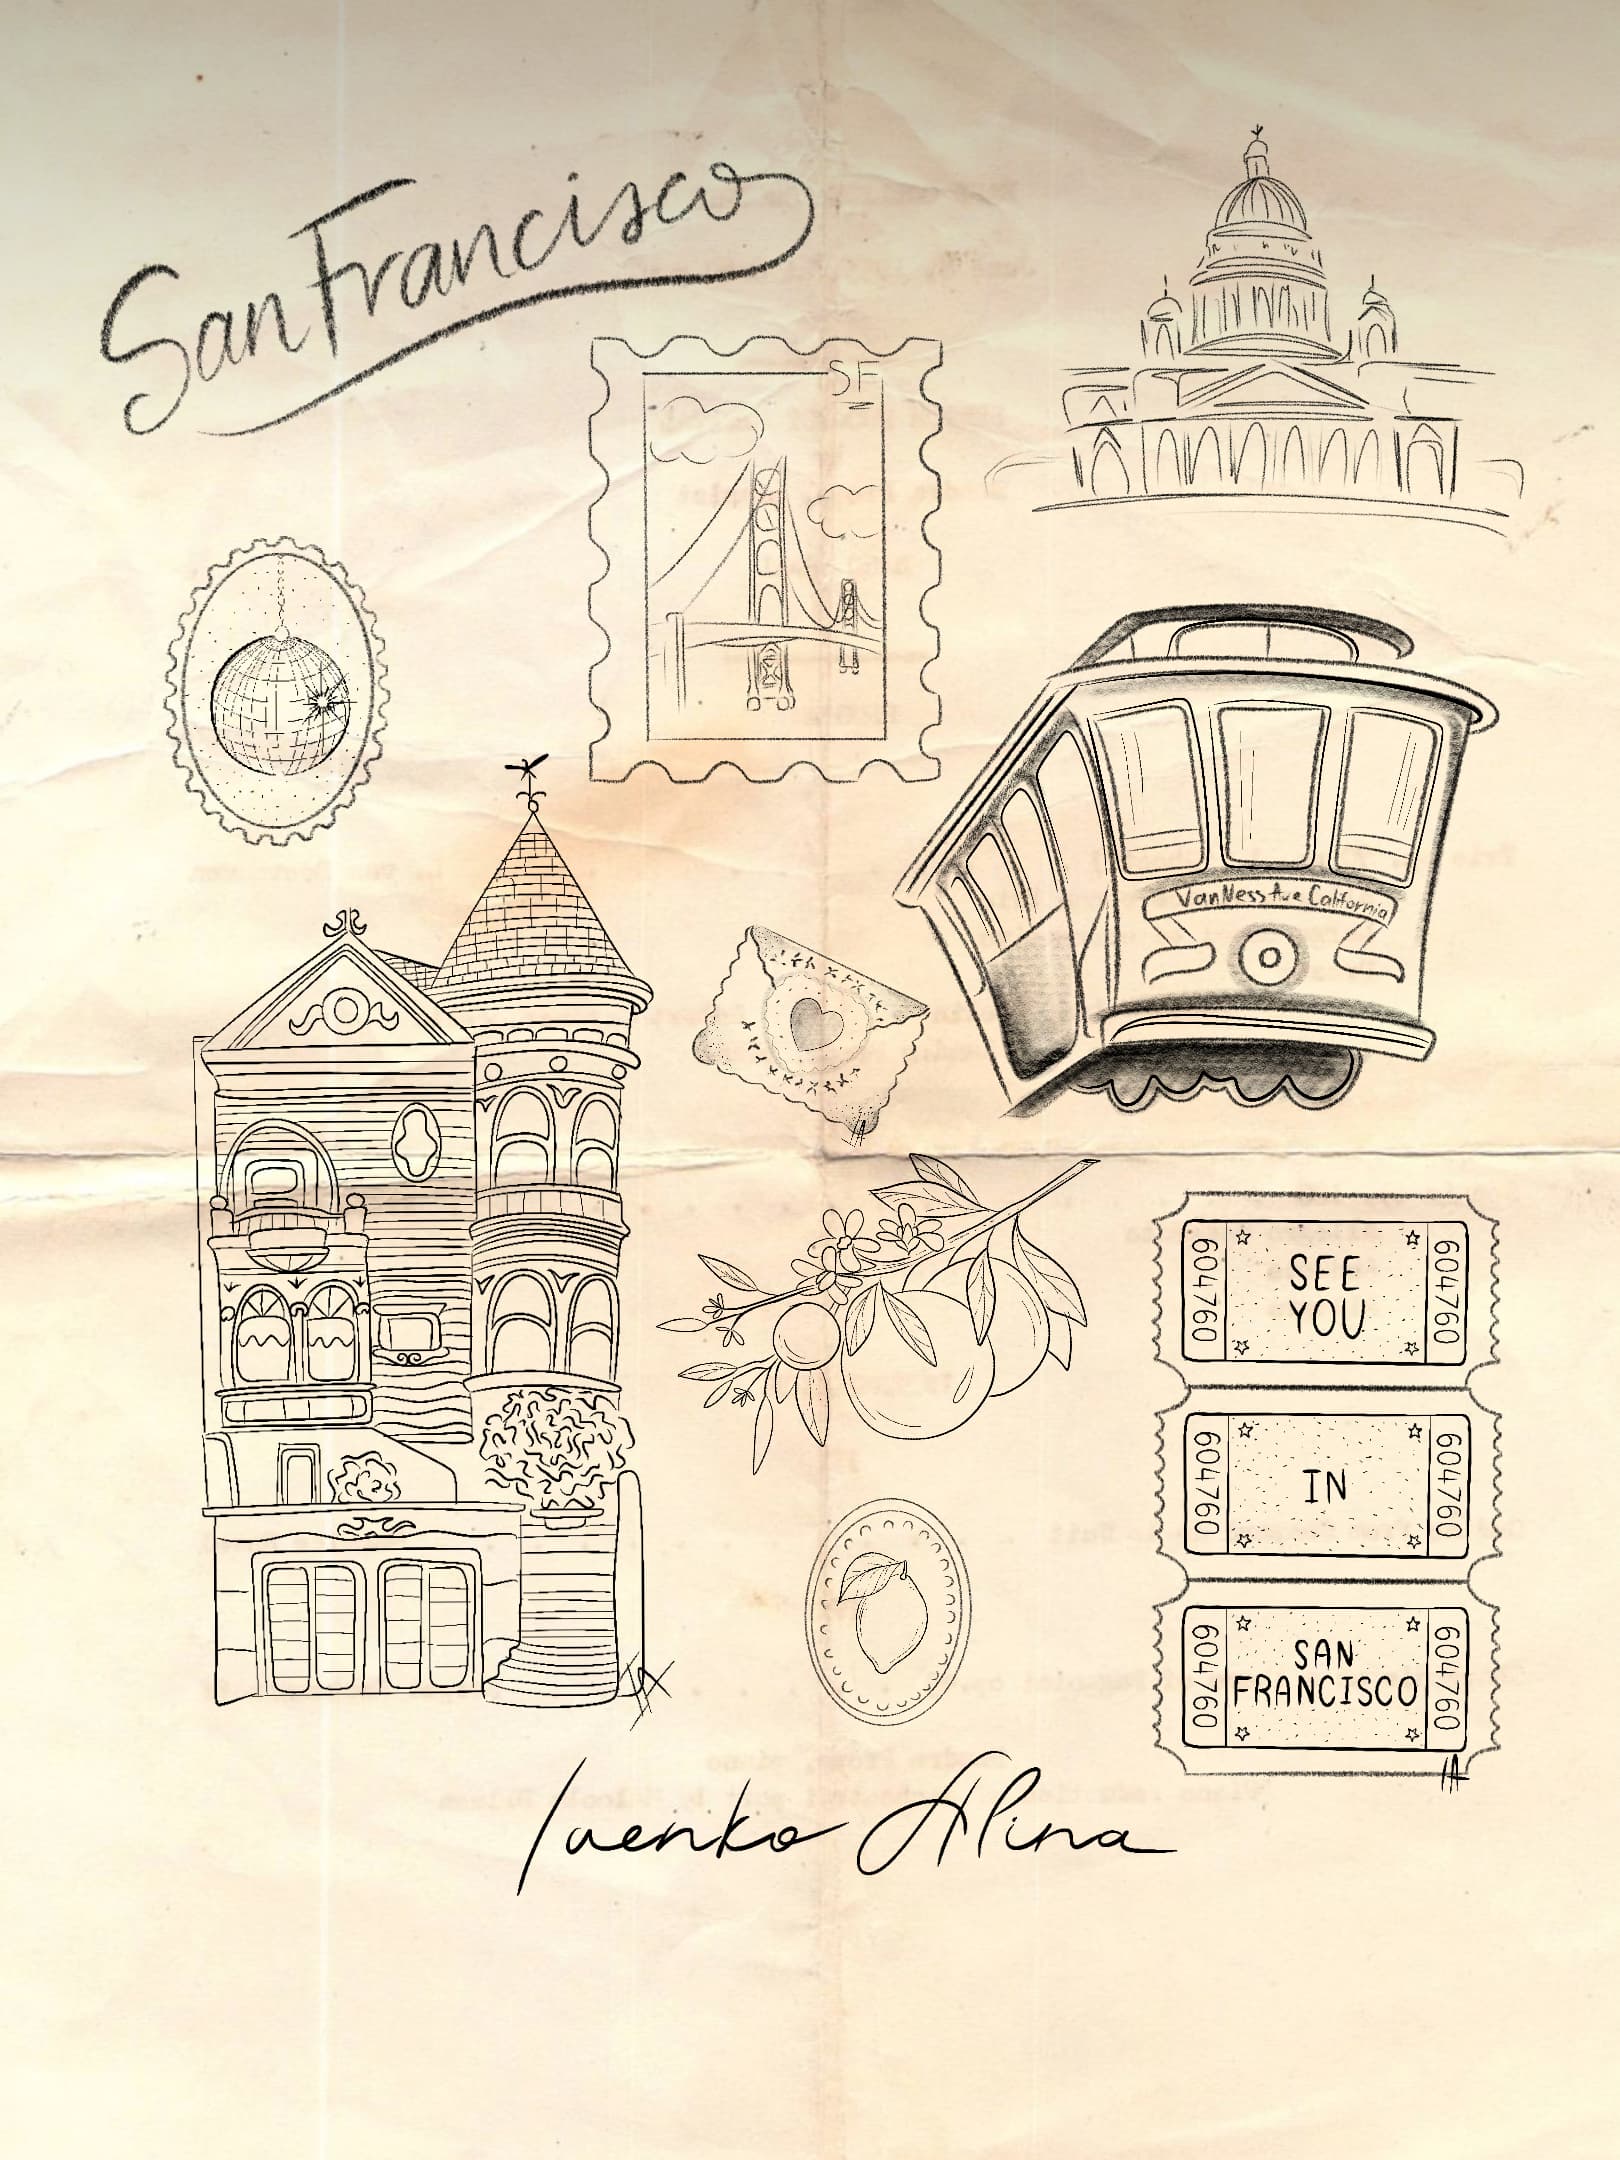 San Francisco
SF
VanNess Ave California
604760
SEE
YOU
604760
604760
IN
604760
604760
SAN
FRANCISCO
604760
IA
Ivenko Alina